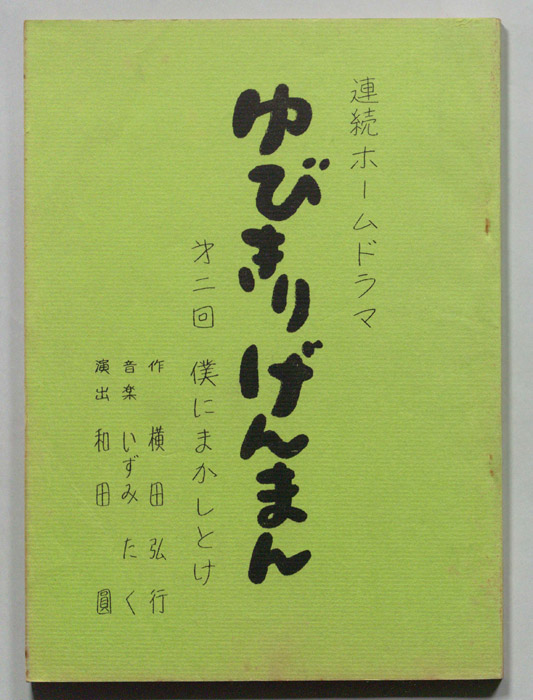 連続ホームドラマ
ゆびきりげんまん
第二回 僕にまかしとけ
作 横田弘行
音楽 いずみたく
演出 和田 圓